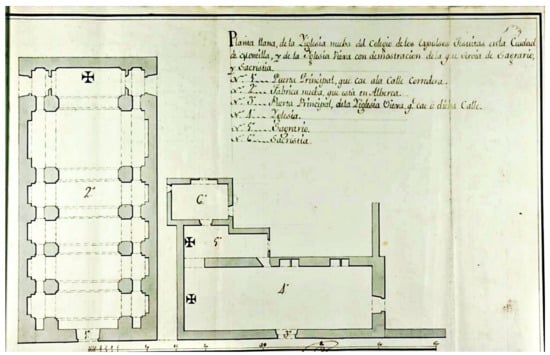 Planta llana, de la Yglesia nueba del Colegio de los Expulsos Jesuitas en la Ciudad
de y de la Yglesia Vieja con demostracion de la que sirvio de Sagrario,
y Sacristia.
N. 1. Puerta Principal, que cae ala Calle Corredera.
N. 2. Fabrica nueba, que está en Alberca.
N. 3. Puerta Principal, de la Yglesia Vieja qe. cae a dicha Calle.
N. 4. Yglesia.
N. 5. Sagrario.
N. 6. Sacristia.
2
6
5
4
1
3